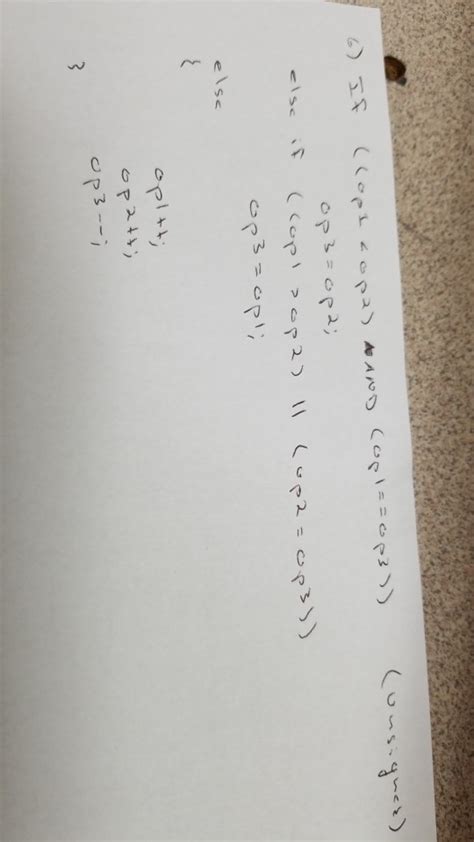 6) If ((op1 < op2) AND (op1 == op3)) (unsigned)
op3 = op2;
else if ((op1 > op2) || (op2 = op3))
op3 = op1;
else
{
op1++;
op2++;
op3--;
}